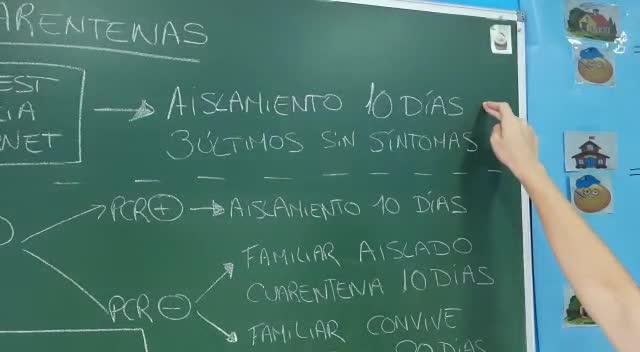 ARENTENAS
EST
CIA
NET
AISLAMIENTO 10 DÍAS
3 ÚLTIMOS SIN SÍNTOMAS
PCR + → AISLAMIENTO 10 DÍAS
PCR -
FAMILIAR AISLADO
CUARENTENA 10 DÍAS
FAMILIAR CONVIVE